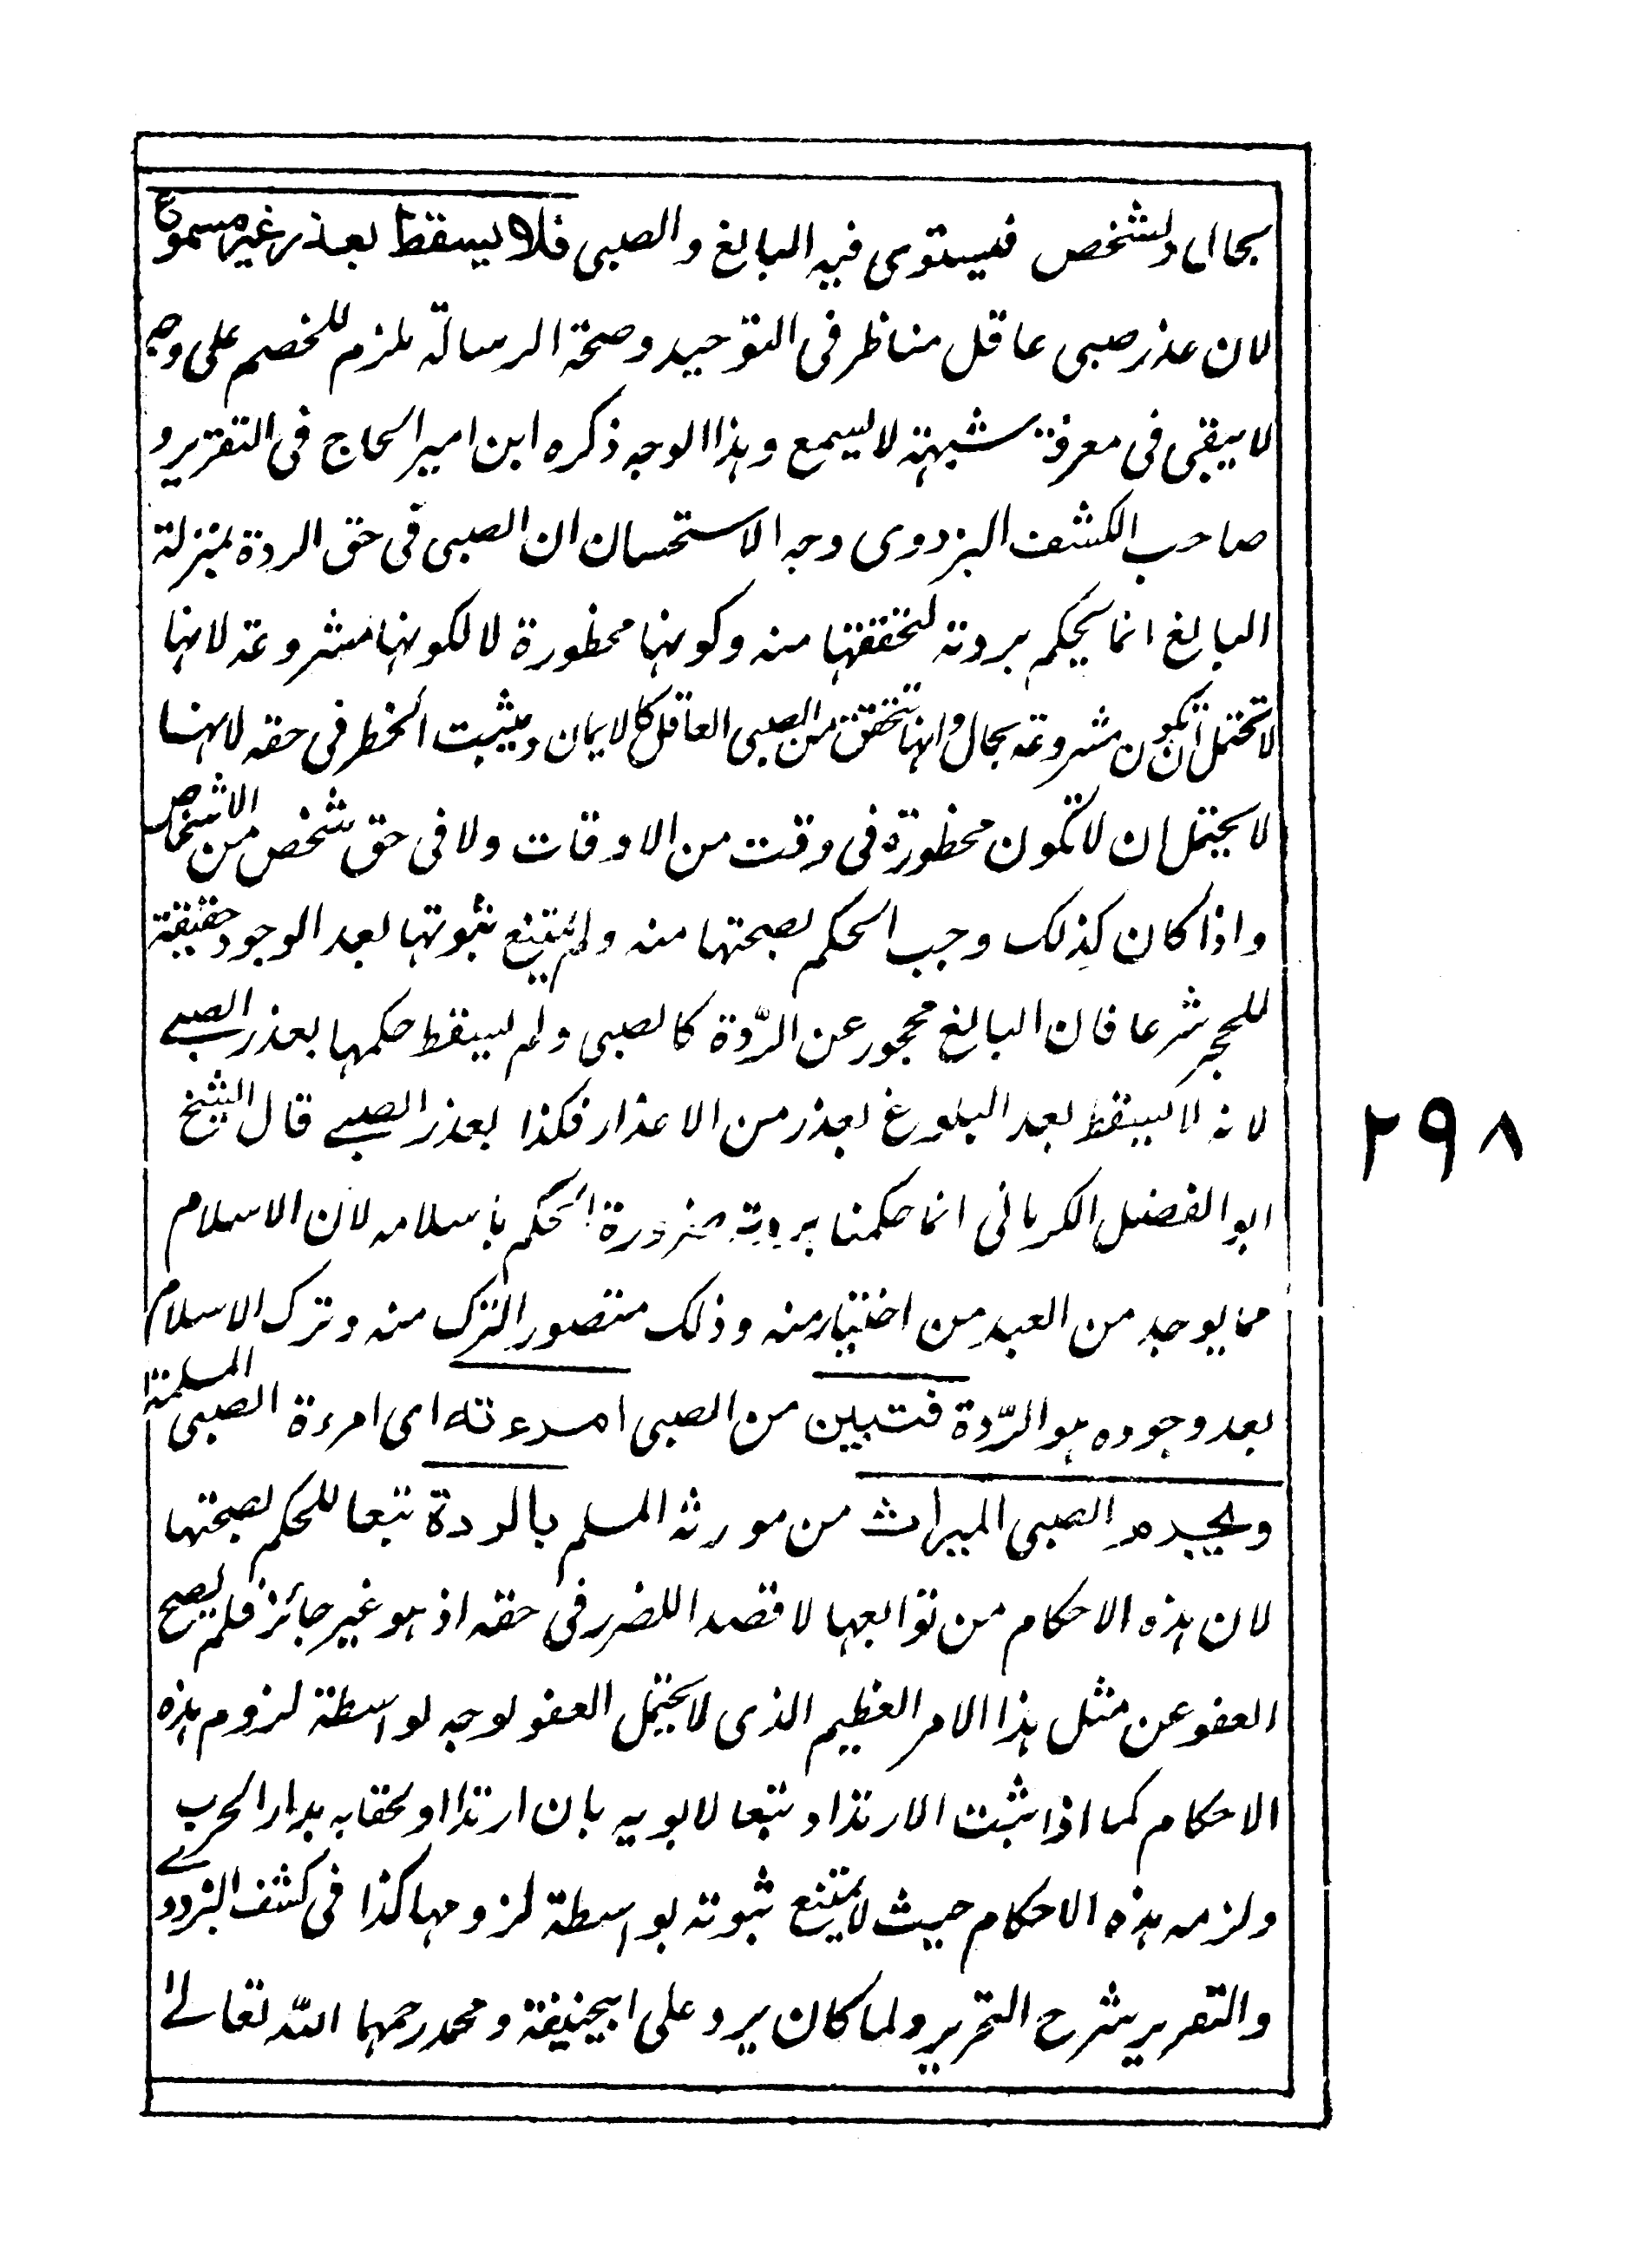 بحال ولشخص فيستوى فيه البالغ والصبى فلا يسقط بعذر غير مسموع
لان عذر صبى عاقل مناظر فى التوحيد وصحة الرسالة ملزم للخصم على وجه
لا يبقى فى معرفة شبهة لا يسمع وهذا الوجه ذكره ابن امير الحاج فى التقرير و
صاحب الكشف البزدوى وجه الاستحسان ان الصبى فى حق الردة بمنزلة
البالغ انما يحكم بردته لتحققها منه وكونها محظورة لا لكونها مشروعة لانها
لا تحتمل ان تكون مشروعة بحال وانها تتحقق من الصبى العاقل كالايمان ويثبت الحظر فى حقه لانها
لا يحتمل ان لا تكون محظورة فى وقت من الاوقات ولا فى حق شخص من الاشخاص
واذا كان كذلك وجب الحكم بصحتها منه ولم يمتنع ثبوتها بعد الوجود حقيقة
للحجر شرعا فان البالغ محجور عن الردّة كالصبى ولم يسقط حكمها بعذر الصبے
لانه لا يسقط بعد البلوغ بعذر من الاعذار فكذا بعذر الصبے قال الشيخ
ابو الفضل الكرمانى انما حكمنا بردته ضرورة الحكم باسلامه لان الاسلام
مما يوجد من العبد من اختيار منه وذلك متصور الترك منه وترك الاسلام
بعد وجوده هو الردّة فتبين من الصبى امرءته اى امرءة الصبى المسلمة
ويحرم الصبى الميراث من مورثه المسلم بالردة تبعا للحكم بصحتها
لان هذه الاحكام من توابعها لا قصد اللضرر فى حقه اذ هو غير جائز فلم يصح
العفو عن مثل هذا الامر العظيم الذى لا يحتمل العفو لوجه لواسطة لزوم هذه
الاحكام كما اذا ثبت الارتداد تبعا لابويه بان ارتدا اولحقا به بدار الحرب
ولزمه هذه الاحكام حيث لا يمتنع ثبوته بواسطة لزومها كذا فى كشف البزدوے
والتقرير شرح التحرير ولما كان يرد على ابيحنيفة ومحمد رحمهما الله تعالےٰ
٢٩٨